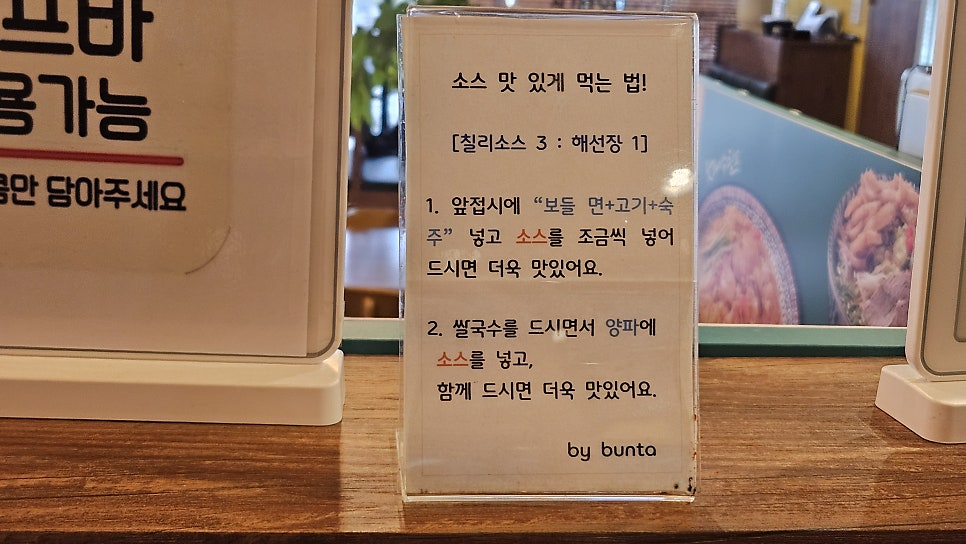 용가능
담아주세요
소스 맛 있게 먹는 법!
[칠리소스 3 : 해선장 1]
1. 앞접시에 “보들 면+고기+숙
주” 넣고 소스를 조금씩 넣어
드시면 더욱 맛있어요.
2. 쌀국수를 드시면서 양파에
소스를 넣고,
함께 드시면 더욱 맛있어요.
by bunta